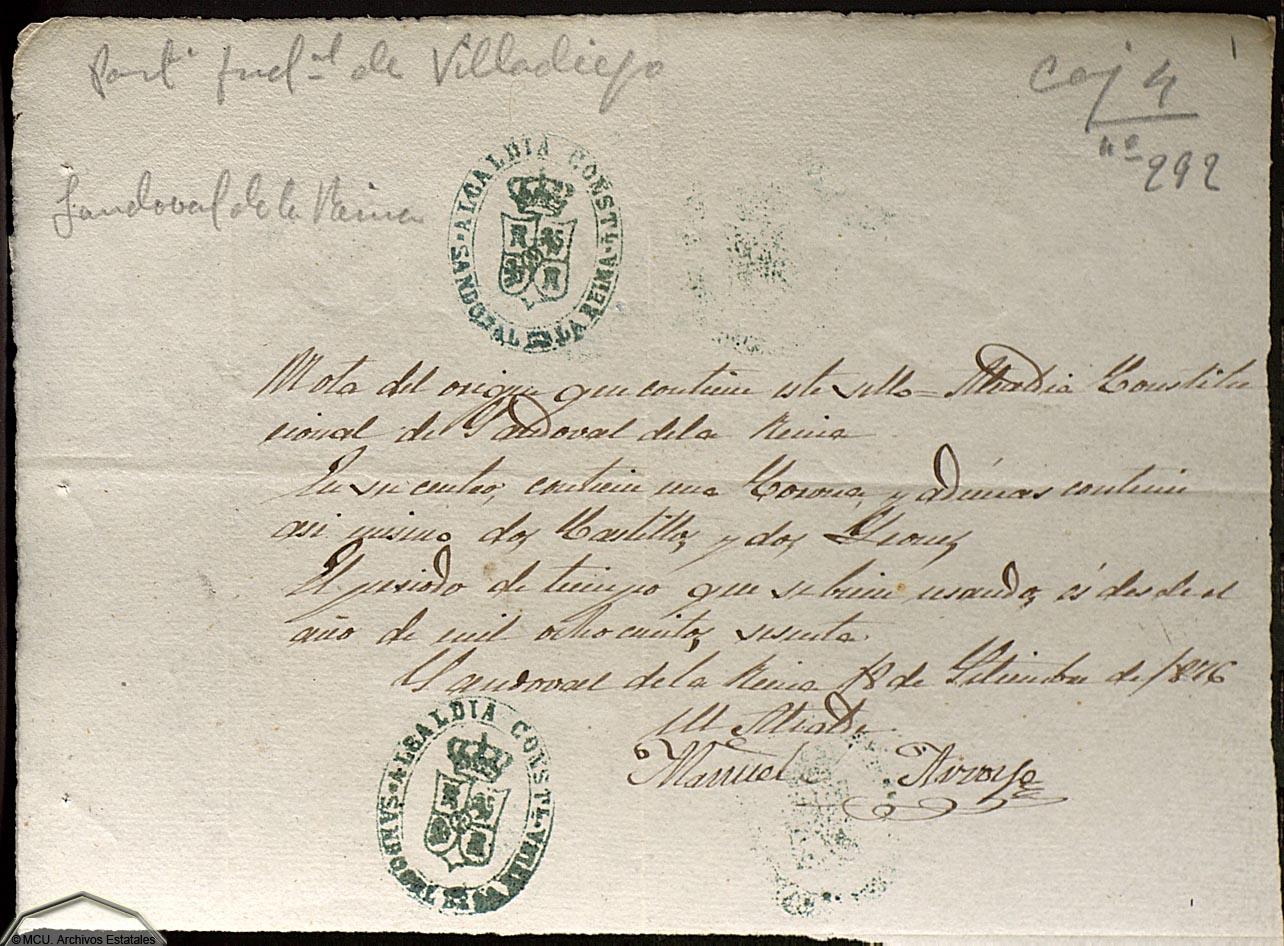 Part.º Jud.al de Villadiego
Caj 4
nº 292
1
Sandoval de la Reina
ALCALDIA CONSTL. SANDOVAL DE LA REINA
Nota del origen que contiene este sello = Alcaldia Constitu
cional de Sandoval de la Reina
En su centro, contiene una Corona, y adémas contiene
asi mismo dos Castillos, y dos Leones,
El periodo de tiempo que se biene usando, és desde el
año de mil ochocientos, sesenta.
Sandoval de la Reina 18 de Setiembre de 1876
El Alcalde
Manuel Arroyo
ALCALDIA CONSTL.
©MCU. Archivos Estatales